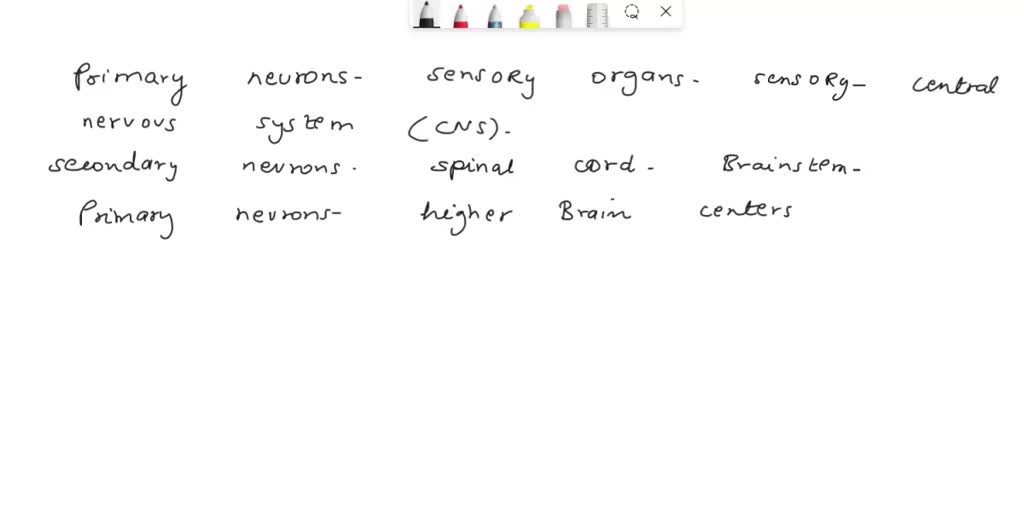 Primary neurons- sensory organs. sensory- central
nervous system (CNS).
secondary neurons. spinal cord. Brainstem-
Primary neurons- higher Brain centers